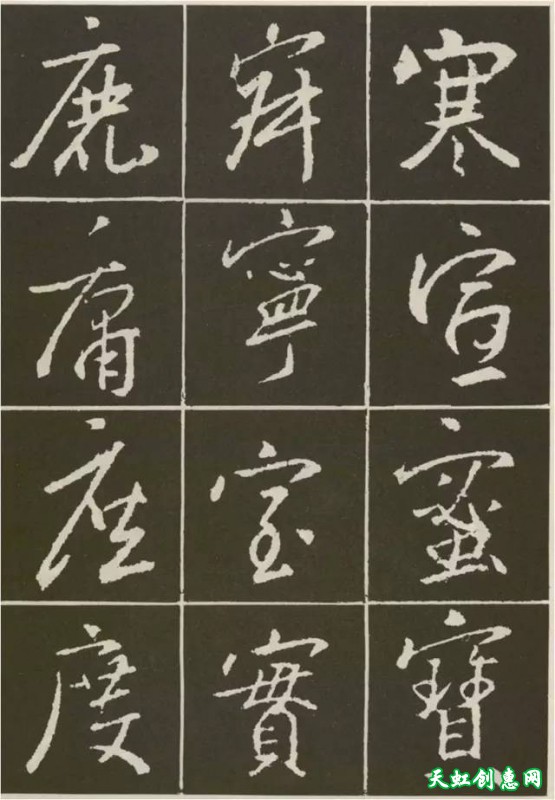 寒宣蜜寶
寧室實
鹿庸座度
天虹创惠网